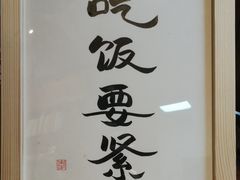 吃饭要紧